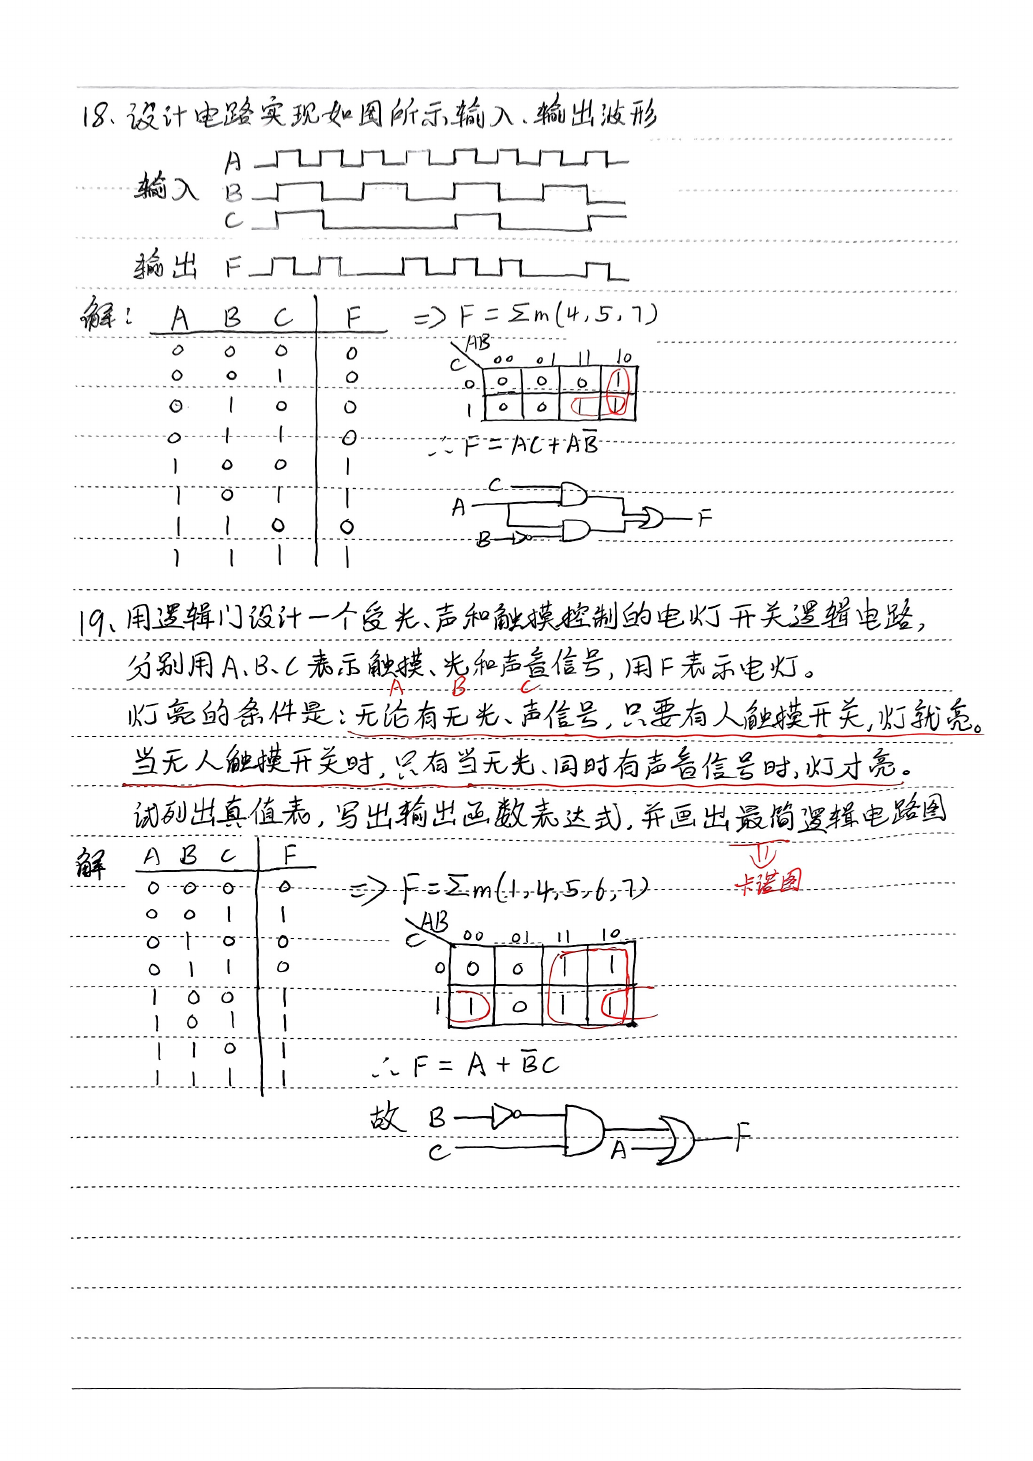 18、设计电路实现如图所示输入、输出波形
输入 A
B
C
输出 F
解: A B C F ⇒ F = Σm(4,5,7)
0 0 0 0
0 0 1 0
0 1 0 0
0 1 1 0
1 0 0 1
1 0 1 1
1 1 0 0
1 1 1 1
AB
C 00 01 11 10
0 0 0 0 1
1 0 0 1 1
∴ F = AC + AB̅
C
A
B
F
19、用逻辑门设计一个受光、声和触摸控制的电灯开关逻辑电路,
分别用A、B、C表示触摸、光和声音信号,用F表示电灯。
A B C
灯亮的条件是:无论有无光、声信号,只要有人触摸开关,灯就亮。
当无人触摸开关时,只有当无光、同时有声音信号时,灯才亮。
试列出真值表,写出输出函数表达式,并画出最简逻辑电路图
⇓
卡诺图
解 A B C F ⇒ F = Σm(1,4,5,6,7)
0 0 0 0
0 0 1 1
0 1 0 0
0 1 1 0
1 0 0 1
1 0 1 1
1 1 0 1
1 1 1 1
AB
C 00 01 11 10
0 0 0 1 1
1 1 0 1 1
∴ F = A + B̅C
故 B
C
A
F